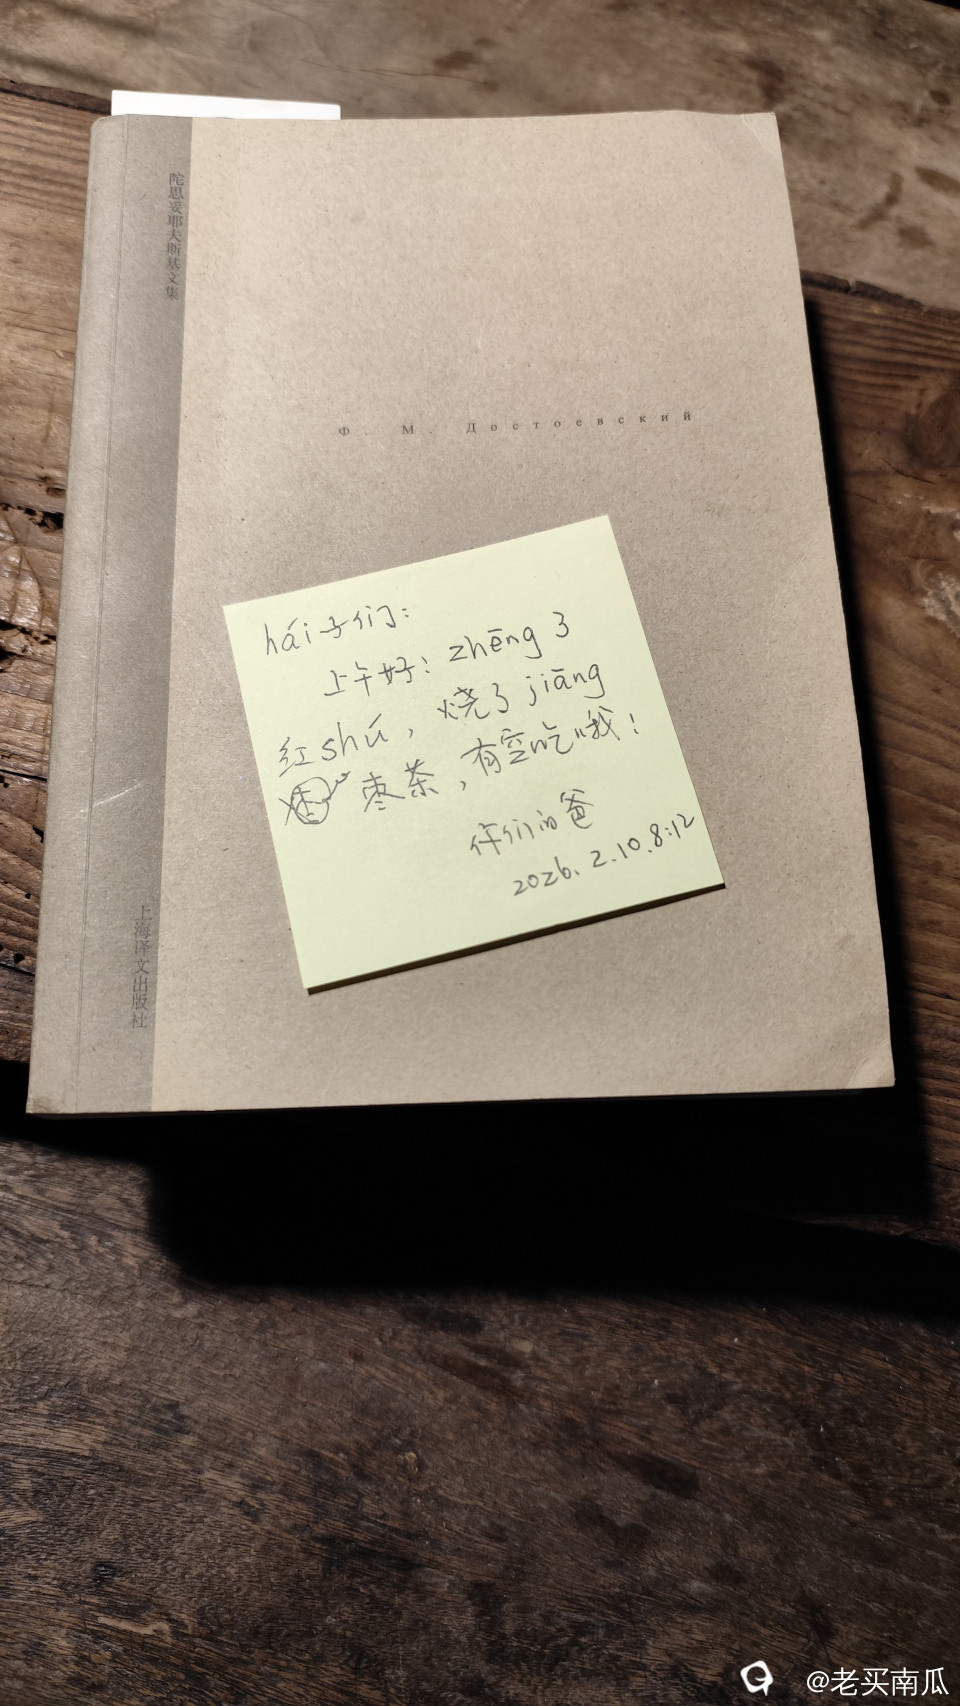 陀思妥耶夫斯基文集
Ф. М. Достоевский
hái子们：
上午好！zhēng了
红shǔ，烧了jiāng
枣茶，有空吃哦！
你们的爸
2026.2.10.8:12
上海译文出版社
@老买南瓜